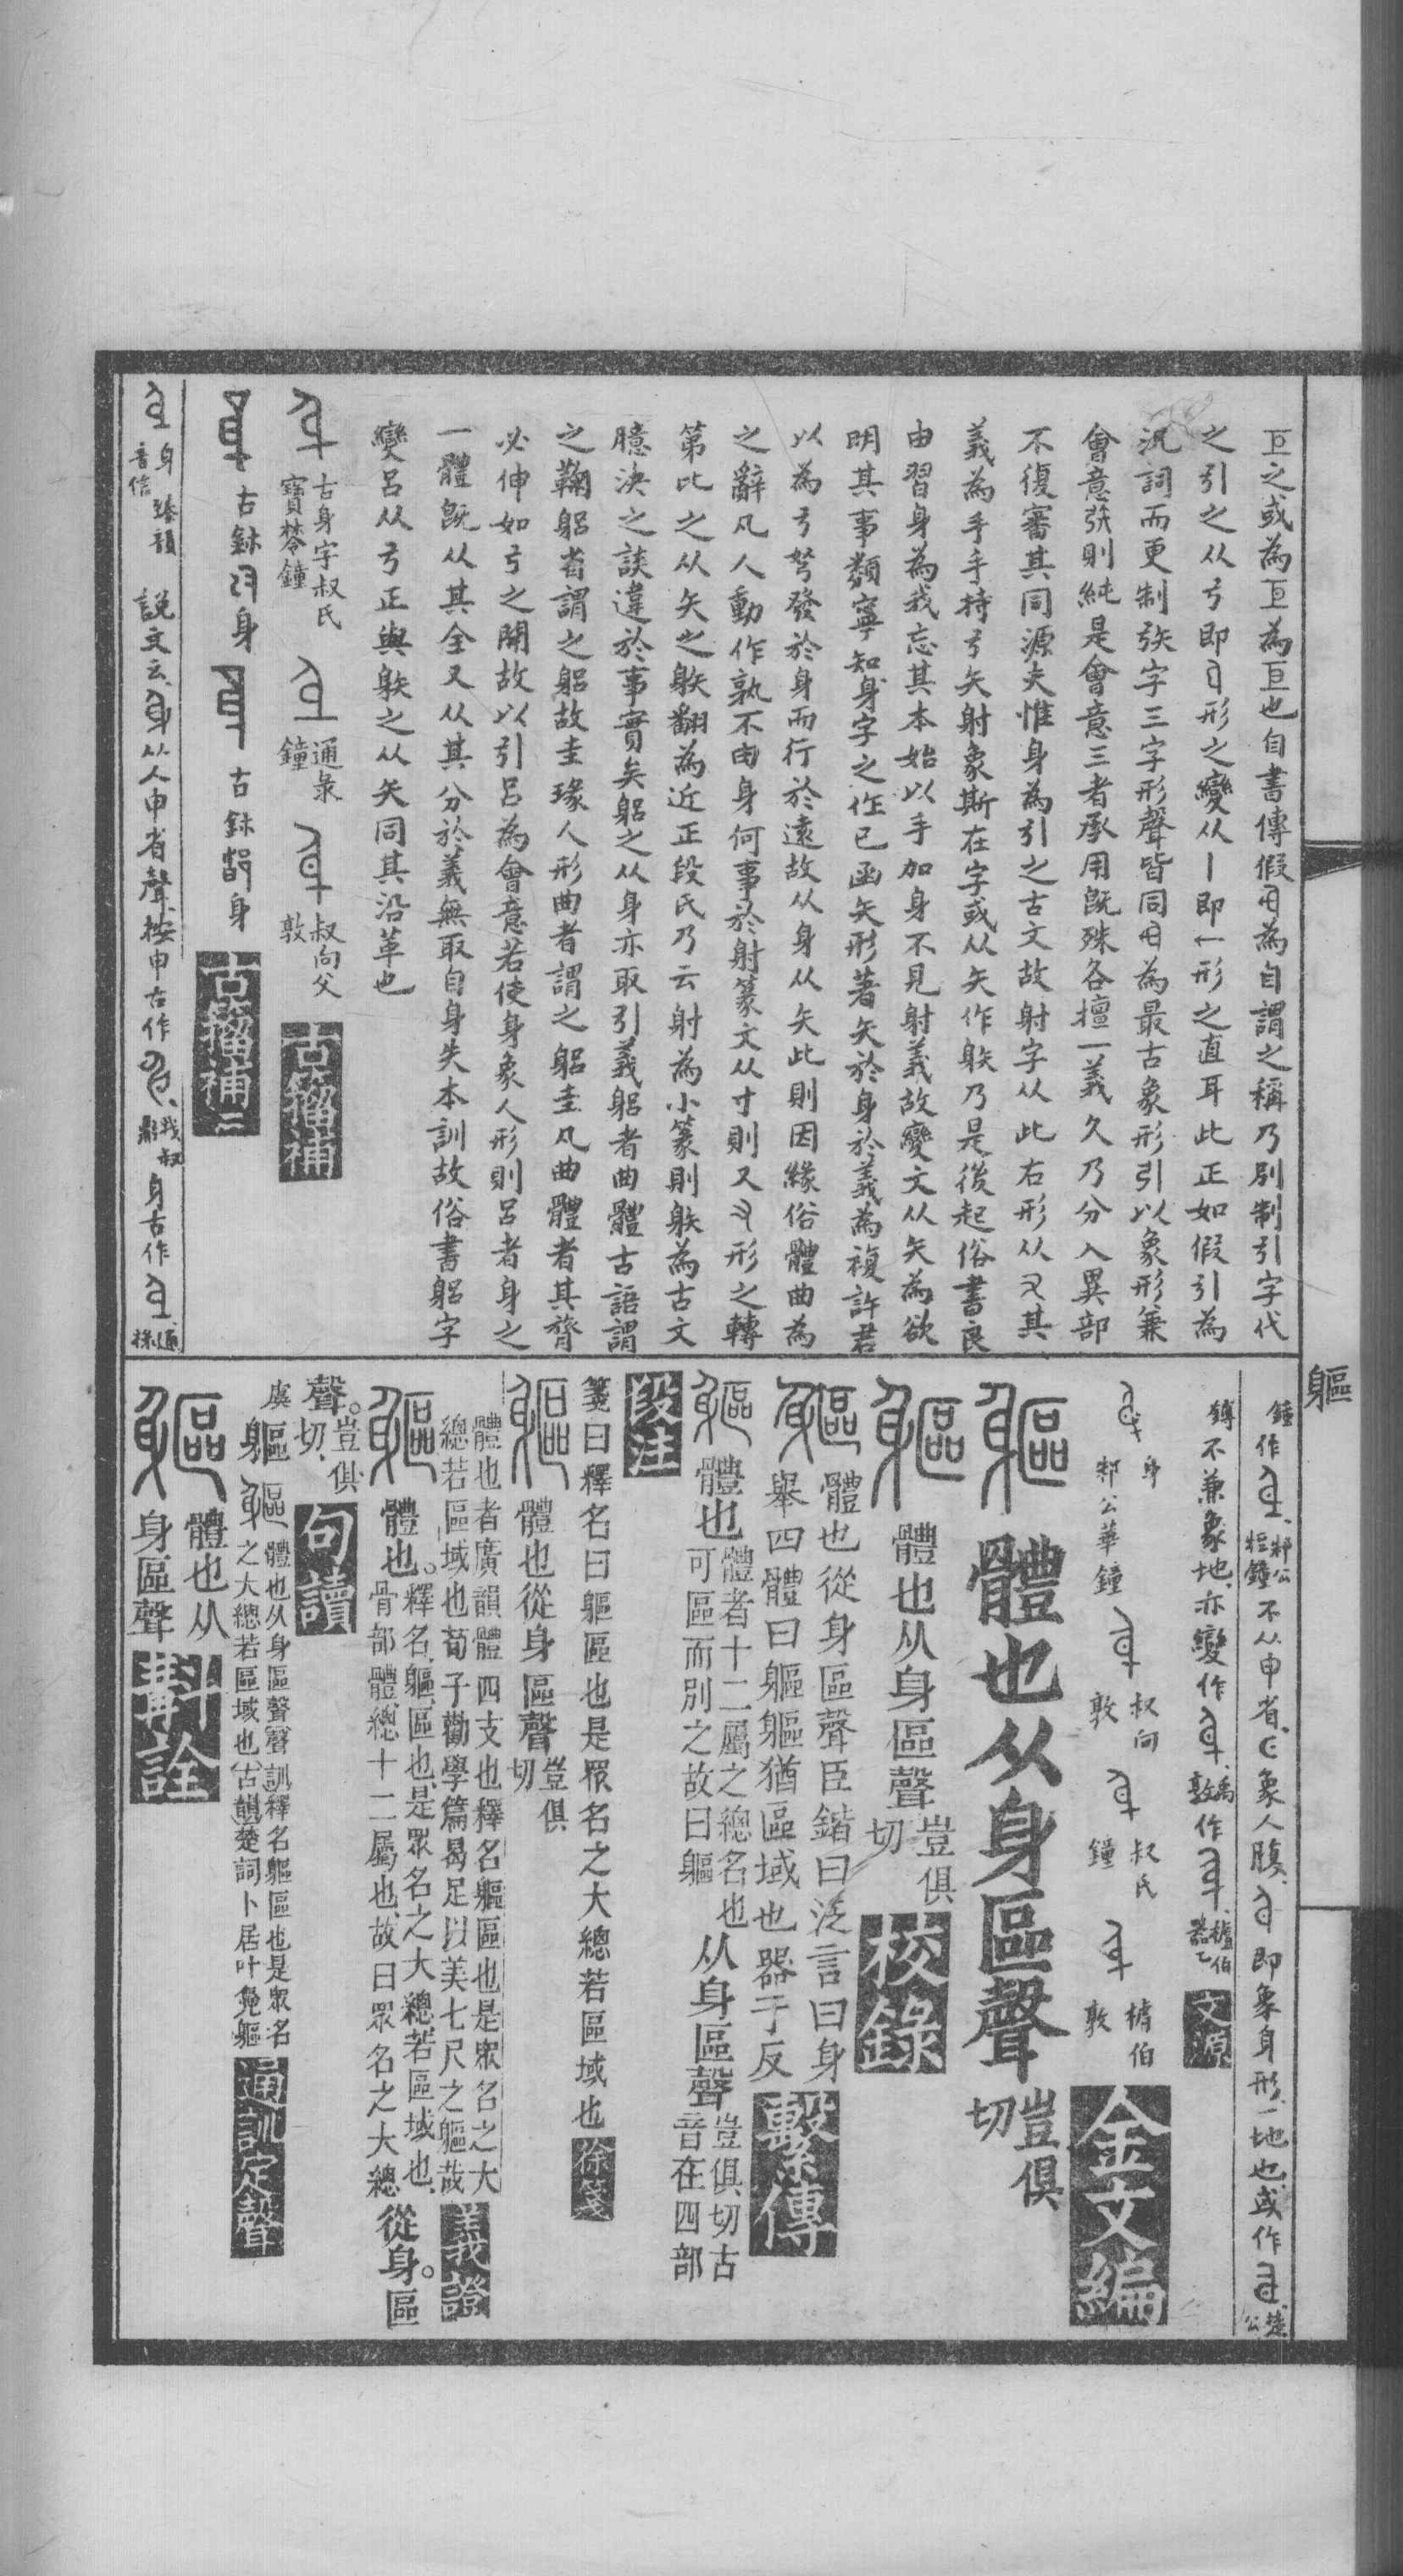 軀
之引之从弓即形之變从丨即形之直耳此正如假引為
況詞而更制弞字三字形聲皆同為最古象形引以象形兼
會意弞則純是會意三者承用既殊各擅一義久乃分入異部
不復審其同源夫惟身為引之古文故射字从此右形从又其
義為手手持弓矢射象斯在字或从矢作躲乃是後起俗書良
由習身為我忘其本始以手加身不見射義故變文从矢為欲
明其事類寧知身字之作已函矢形著矢於身於義為複許君
以為弓弩發於身而行於遠故从身从矢此則因緣俗體曲為
之辭凡人動作孰不由身何事於射篆文从寸則又形之轉
第比之从矢之躲翻為近正段氏乃云射為小篆則躲為古文
臆決之談違於事實矣躳之从身亦取引義躳者曲體古語謂
之鞠躳省謂之躳故圭瑑人形曲者謂之躳圭凡曲體者其膂
必伸如弓之開故以引呂為會意若使身象人形則呂者身之
一體既从其全又从其分於義無取自身失本訓故俗書躳字
變呂从弓正與躲之从矢同其沿革也
古身字叔氏
寶棽鐘
通彔
鐘
叔向父
敦
古籀補
古鉨身
古鉨身
古籀補二
身臻韻
音信
說文云从人申省聲按申古作身古作
鐘作不从申省象人腹即象身形一地也或作
鎛不兼象地亦變作作
文源
身
邾公華鐘
叔向
敦
叔氏
鐘
敦
金文編
體也从身區聲
豈俱
切
體也从身區聲
豈俱
切
校錄
體也從身區聲臣鍇曰泛言曰身
舉四體曰軀軀猶區域也器于反
繫傳
體也
體者十二屬之總名也
可區而別之故曰軀
从身區聲
豈俱切古
音在四部
段注
箋曰釋名曰軀區也是眾名之大總若區域也
徐箋
體也從身區聲
豈俱
切
體也者廣韻體四支也釋名軀區也是眾名之大
總若區域也荀子勸學篇曷足以美七尺之軀哉
義證
體也
釋名軀區也是眾名之大總若區域也
骨部體總十二屬也故曰眾名之大總
從身區
聲
豈俱
切
句讀
虞
軀
體也从身區聲聲訓釋名軀區也是眾名
之大總若區域也古韻楚詞卜居叶軀
通訓定聲
體也从
身區聲
斠詮